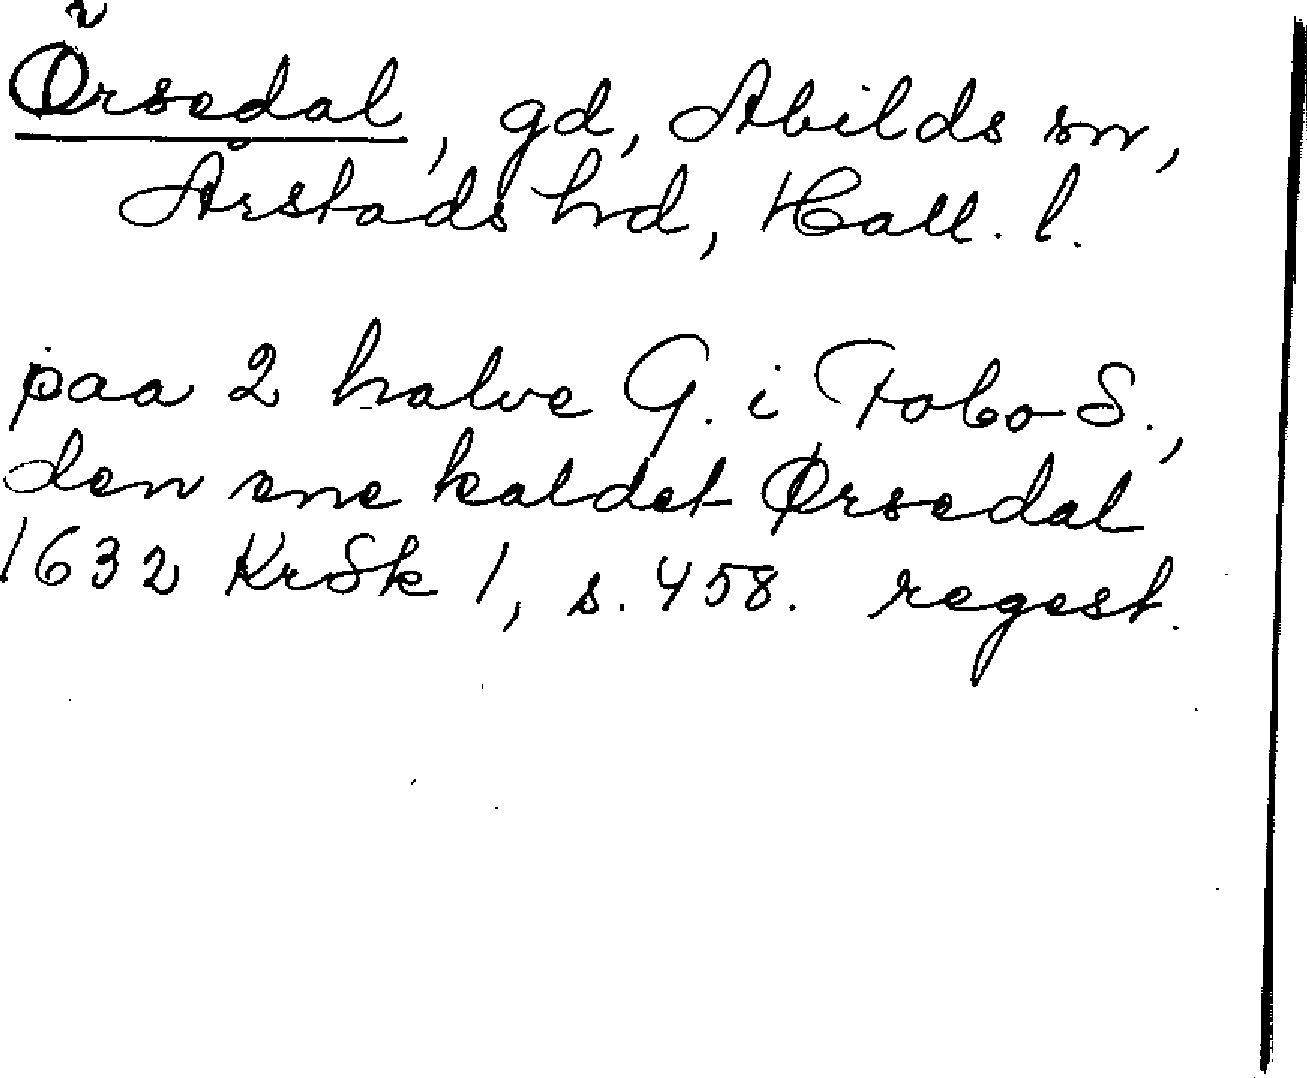 Örsedal, gd, Abilds sn,
Årstads hd, Hall. l.
paa 2 halve G. i Fobo S.,
den ene kaldet Ørsedal
1632 KrSk 1, s. 458. regest.